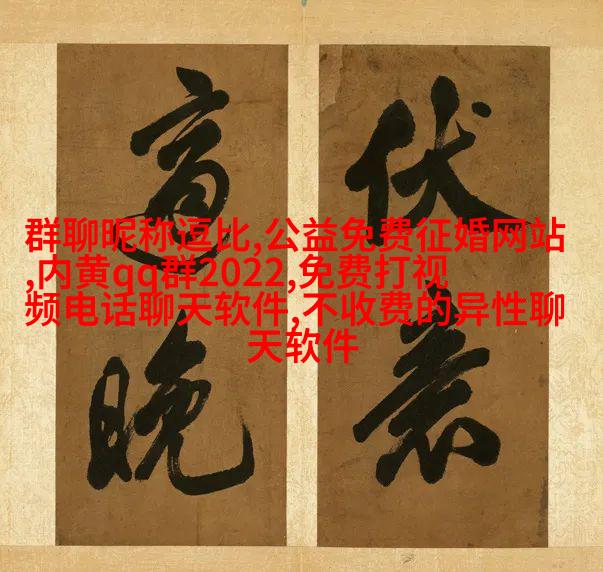 群聊昵称逗比,公益免费征婚网站
,内黄qq群2022,免费打视
频电话聊天软件,不收费的异性聊
天软件
伏
晚